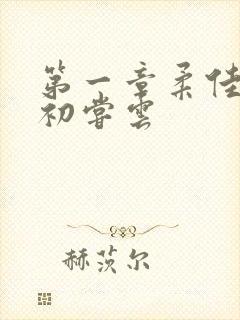 第一章柔佳
初尝云
赫茨尔